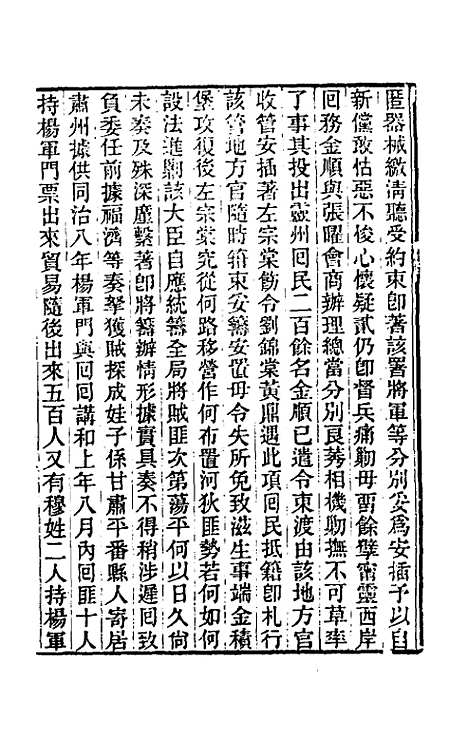 匿器械繳淸聽受約束卽著該署將軍等分別妥爲安插予以自
新儻敢怙惡不悛心懷疑貳仍卽督兵痛勦毋留餘孽甯靈西岸
回務金順與張曜會商辦理總當分別良莠相機勦撫不可草率
了事其投出靈州回民二百餘名金順已遣令東渡由該地方官
收管安插著左宗棠飭令劉錦棠黃鼎遇此項回民抵籍卽札行
該管地方官隨時鈐束安籌安置毋令失所免致滋生事端金積
堡攻復後左宗棠究從何路移營作何布置河狄匪勢若何如何
設法進勦該大臣自應統籌全局將賊匪次第蕩平何以日久尙
未奏及殊深廑繫著卽將籌辦情形據實具奏不得稍涉遲回致
負委任前據福濟等奏拏獲賊探成姓子係甘肅平番縣人寄居
肅州據供同治八年楊軍門與回回講和上年八月內回匪十人
持楊軍門票出來貿易隨後出來五百人又有穆姓二人持楊軍